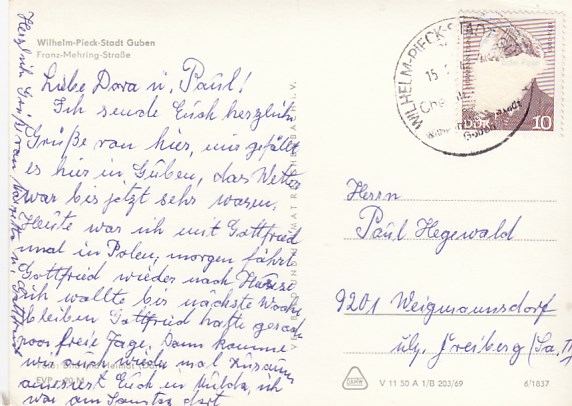 Wilhelm-Pieck-Stadt Guben
Franz-Mehring-Straße
Liebe Dora u. Paul!
Ich sende Euch herzliche
Grüße von hier, mir gefällt
es hier in Guben, das Wetter
war bis jetzt sehr warm.
Heute war ich mit Gottfried
mal in Polen, morgen fährt
Gottfried wieder nach Hause
ich wollte bis nächste Woche
bleiben Gottfried hatte gerade
paar freie Tage. Dann komme
wir auch wieder mal zusamm
Euch in ich
war am dort
Herzlich Grüße von u. Gottfried
WILHELM-PIECK-STADT GUBEN
15.
Guben
DDR 10
Herrn
Paul Hegewald
9201 Weigmannsdorf
üb. Freiberg (Sa.)
V 11 50 A 1/B 203/69
6/1837